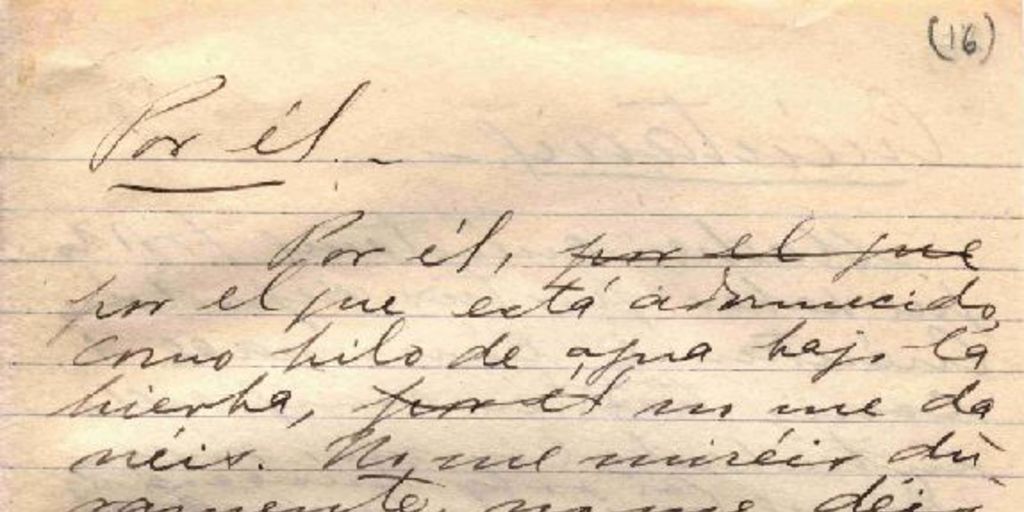 (16)
Por él.-
Por él, por el que
por el que está adormecido,
como hilo de agua bajo la
hierba, por él no me da
néis. No me miréis du
ramente, no me déis